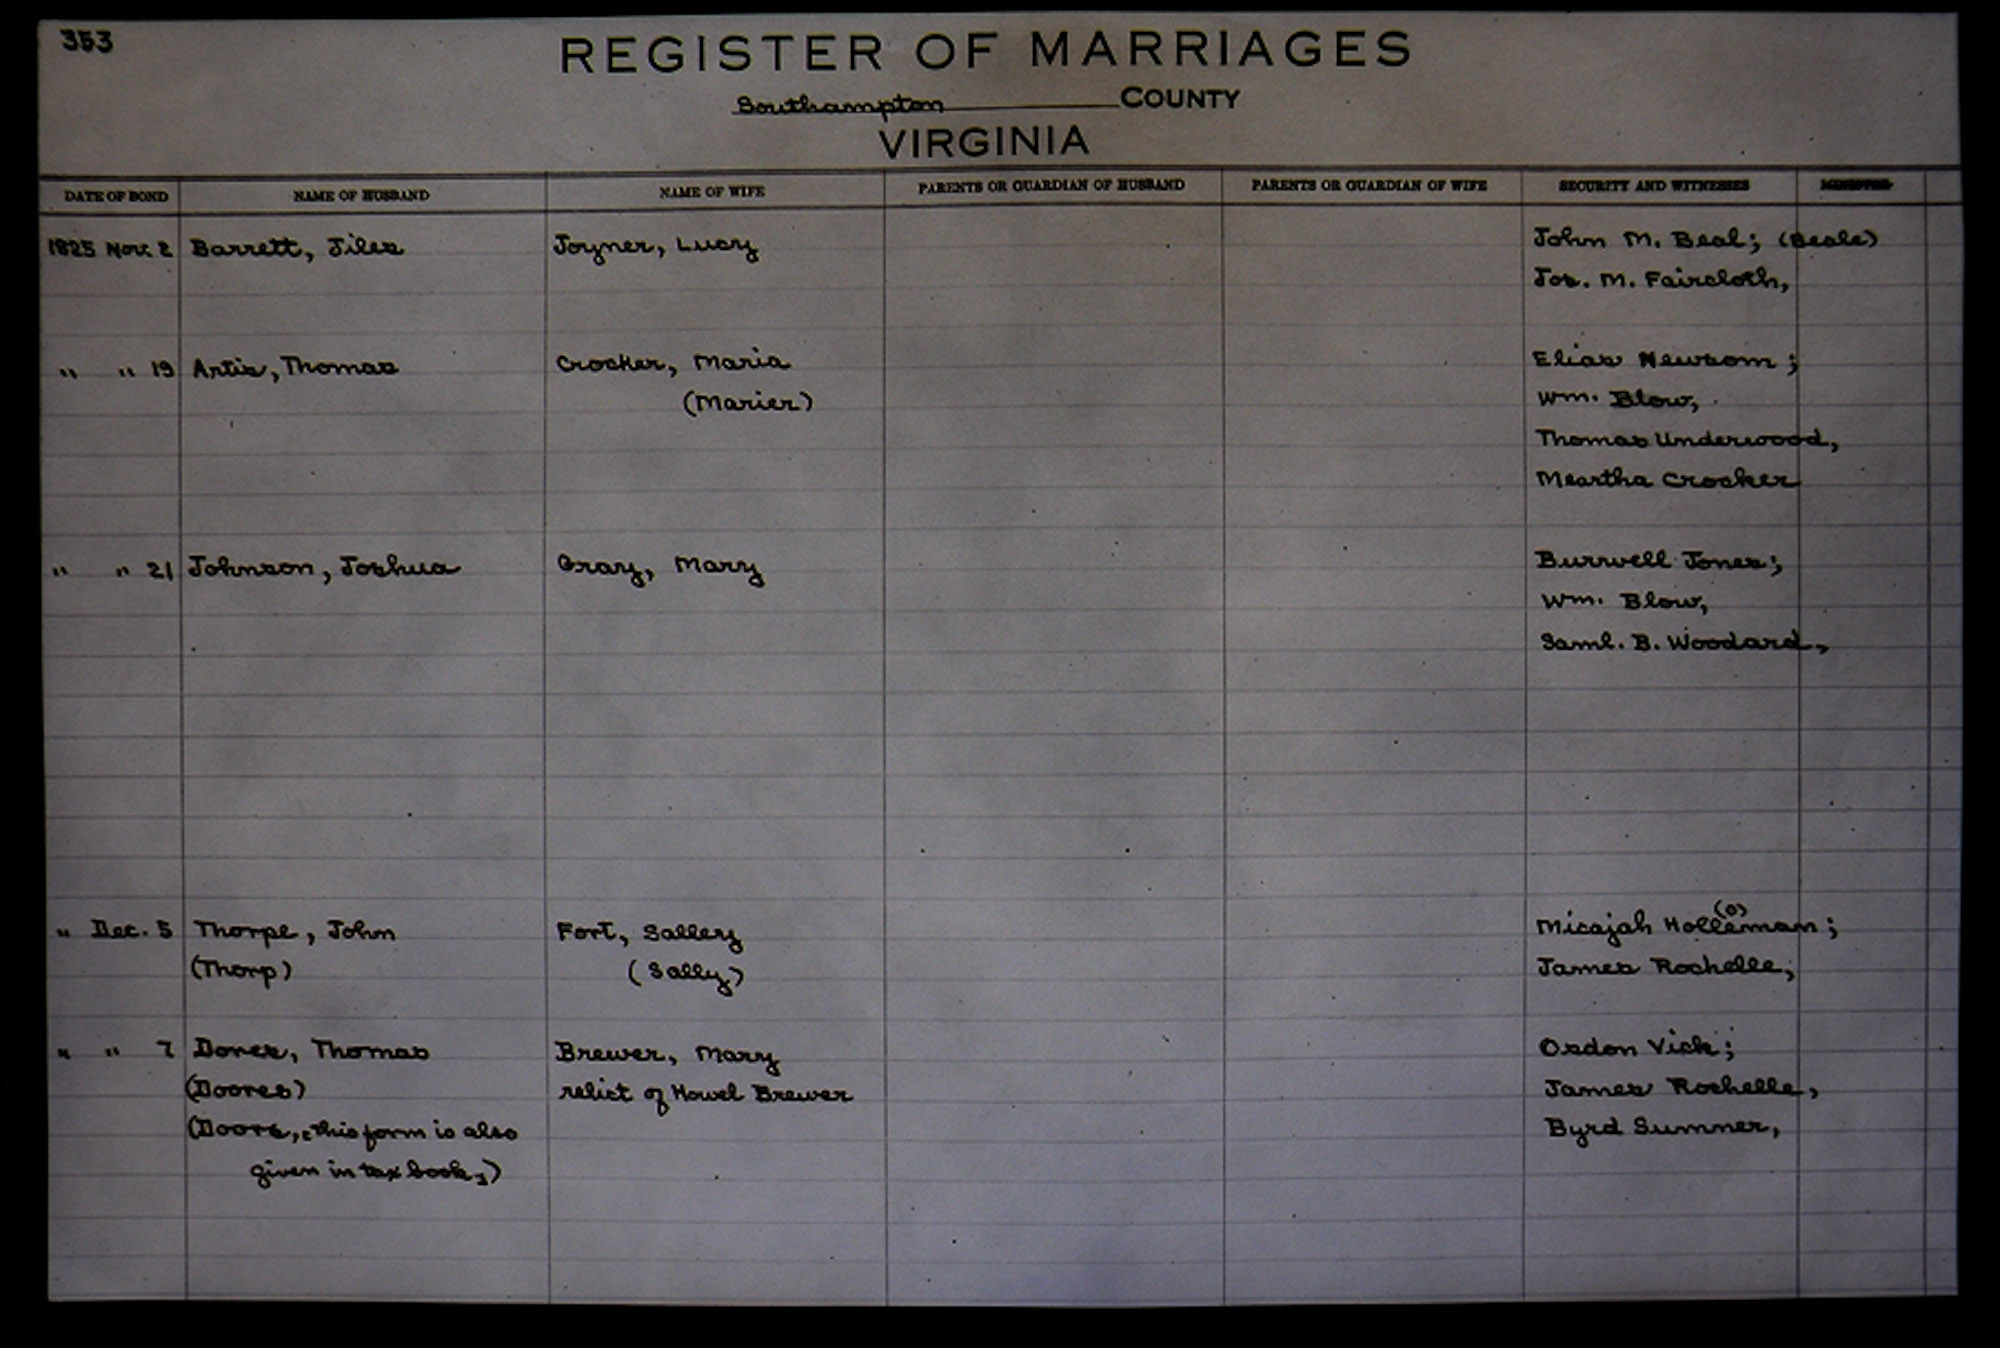 353
REGISTER OF MARRIAGES
Southampton COUNTY
VIRGINIA
DATE OF BOND NAME OF HUSBAND NAME OF WIFE PARENTS OR GUARDIAN OF HUSBAND PARENTS OR GUARDIAN OF WIFE SECURITY AND WITNESSES MINISTER
1825 Nov. 2 Barrett, Jiles Joyner, Lucy John M. Beal; (Beale)
Jos. M. Faircloth,
" " 19 Artis, Thomas Crocker, Maria Elias Newsom;
(Marier) Wm. Blow,
Thomas Underwood,
Meartha Crocker
" " 21 Johnson, Joshua Gray, Mary Burwell Jones;
Wm. Blow,
Saml. B. Woodard,
" Dec. 5 Thorpe, John Fort, Sallery Micajah Holleman; (o)
(Thorp) (Sally) James Rochelle,
" " 7 Dores, Thomas Brewer, Mary Osdon Vick;
(Doores) relict of Howel Brewer James Rochelle,
(Doors, this form is also Byrd Summer,
given in tax book,)